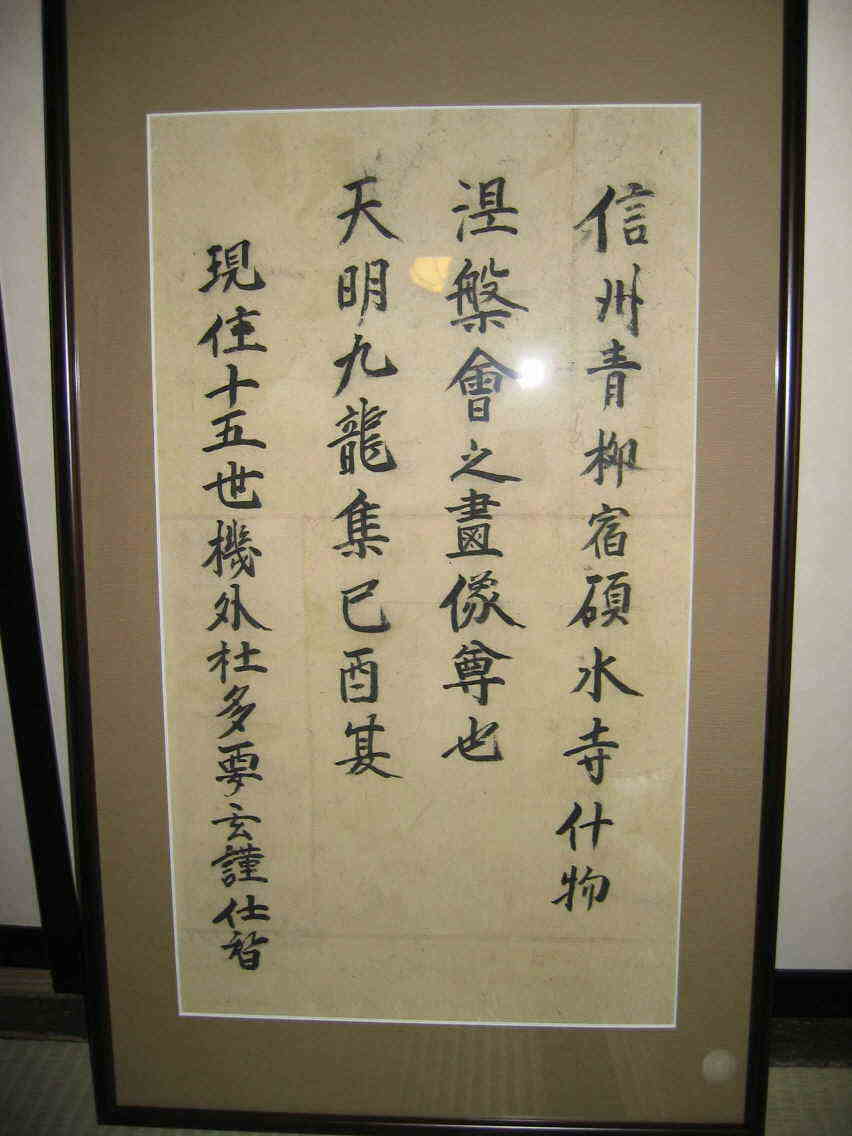 信州青柳宿碩水寺什物
涅槃會之畫像尊也
天明九龍集已酉
現住十五世機外杜多要玄謹